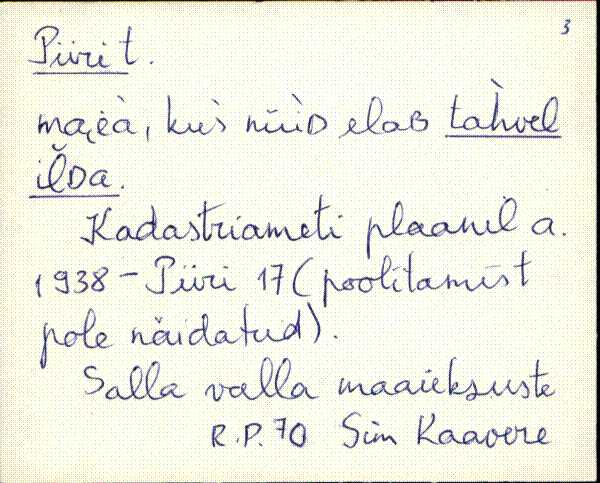 3
Piiri t.
maja, kus nüüd elab tahvel
ilda.
Kadastriameti plaanil a.
1938 - Piiri 17 (poolitamist
pole näidatud).
Salla valla maaüksuste
R.P. 70 Sim Kaavere